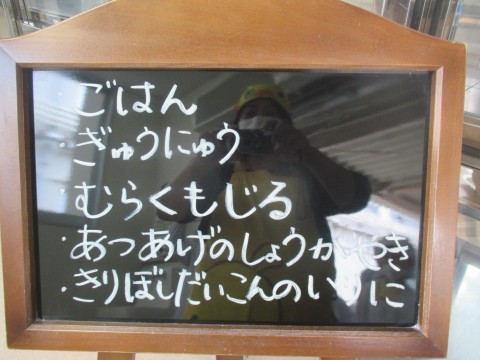 ごはん
・ぎゅうにゅう
・むらくもじる
・あつあげのしょうがやき
・きりぼしだいこんのいりに